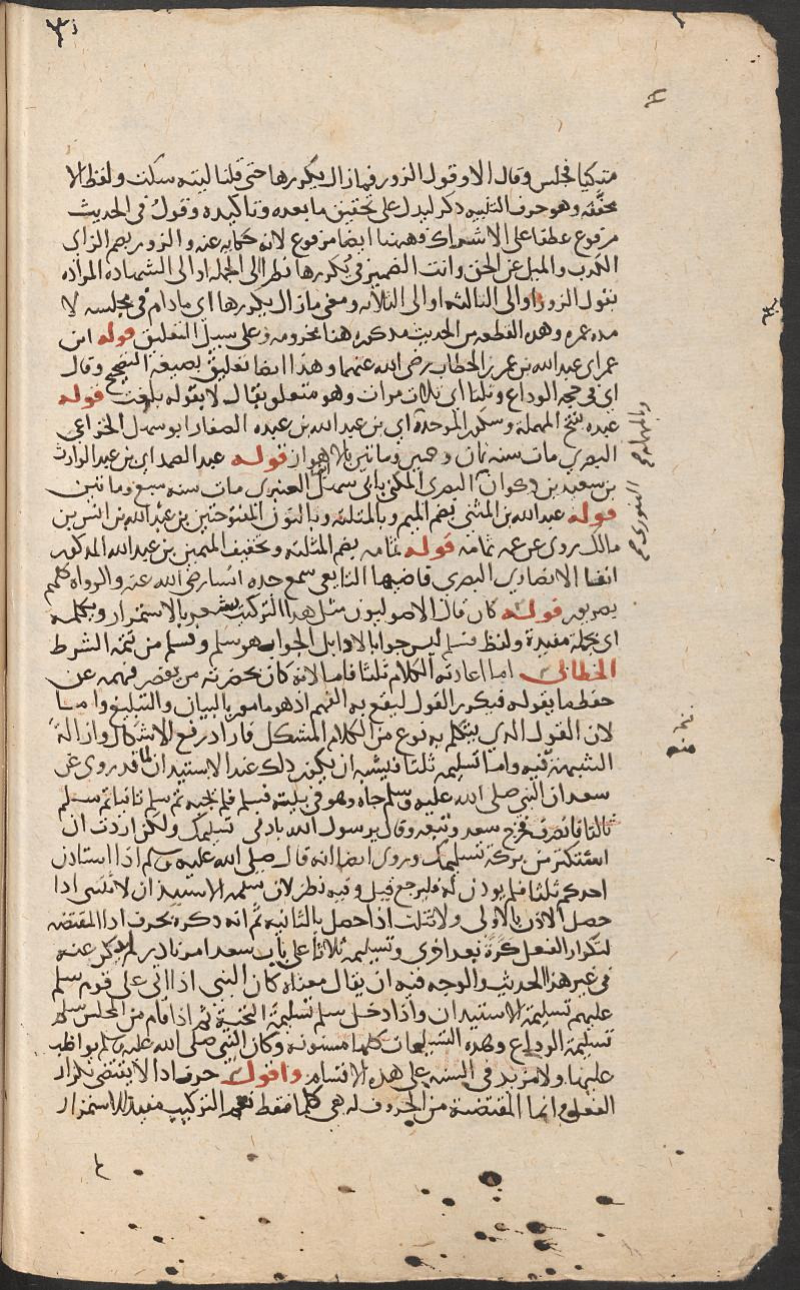 متكيا فجلس وقال الا وقول الزور فما زال يكررها حتى قلنا ليته سكت ولفظ الا
مخففه وهو حرف التنبيه ذكر ليدل على تحقيق ما بعده وتاكيده وقول في الحديث
مرفوع عطفا على الاشراك وههنا ايضا مرفوع لانه حكايه عنه والزور بضم الزاى
الكذب والميل عن الحق وانث الضمير في يكررها نظرا الى الجمله او الى الشهاده المراده
بقول الزور او الى الثالثه او الى الثلاثه ومعنى ما زال يكررها اى ما دام في مجلسه لا
مده عمره وهذه القطعه من الحديث مذكوره هنا مخرومه وعلى سبيل التعليق قوله ابن
عمر اى عبد الله بن عمر بن الخطاب رضى الله عنهما وهذا ايضا تعليق بصيغة التصحيح وقال
اى في حجه الوداع وثلثا اى ثلاث مرات وهو متعلق بقال لا بقوله بلغت قوله
عبده بفتح المهملة وسكون الموحدة اي بن عبد الله بن عبده الصفار ابو سهل الخزاعي
البصري مات سنه ثمان وخمسين وماتين بالاهواز قوله عبد الصمد اى بن عبد الوارث
بن سعيد بن ذكوان البصرى المكنى بابى سهل العنبرى مات سنه سبع وماتين
قوله عبد الله بن المثنى بضم الميم وبالمثلثه وبالنون المفتوحتين بن عبد الله بن انس بن
مالك روى عن عمه ثمامه قوله ثمامه بضم المثلثه وتخفيف الميمين بن عبد الله المذكور
انفا الانصاري البصرى قاضيها التابعي سمع جده انسا رضى الله عنه والرواه كلهم
بصريون قوله كان قال الاصوليون مثل هذا التركيب يشعر بالاستمرار وبكلمه
اى بجملة مفيدة ولفظ فسلم ليس جوابا لاذا بل الجواب هو سلم وفسلم من تتمة الشرط
الخطابى اما اعادته الكلام ثلثا فاما لانه كان بحضرته من يقصر فهمه عن
حفظ ما يقوله فيكرر القول ليقع به الفهم اذ هو مامور بالبيان والتبليغ واما
لان القول الذي يتكلم به نوع من الكلام المشكل فاراد رفع الاشكال وازالة
الشبهة فيه واما تسليمه ثلثا فيشبه ان يكون ذلك عند الاستيذان لما قد روى عن
سعد ان النبي صلى الله عليه وسلم جاه وهو في بيته فسلم فلم يجبه ثم سلم ثانيا ثم سلم
ثالثا فانصرف فخرج سعد وتبعه وقال يرسول الله باذني تسليمك ولكن اردت ان
استكثر من بركة تسليمك وروى ايضا انه قال صلى الله عليه وسلم اذا استاذن
احدكم ثلثا فلم يوذن له فليرجع قيل وفيه نظر لان تسلمه الاستيذان لا تثنى اذا
حصل الاذن بالاولى ولا تثلث اذا حصل بالثانيه ثم انه ذكره بحرف اذا المقتضه
لتكرار الفعل كرة بعد اخرى وتسليمه ثلاثا على باب سعد امر نادر لم يذكر عنه
في غير هذا الحديث والوجه فيه ان يقال معناه كان النبي اذا اتى على قوم سلم
عليهم تسليمة الاستيذان واذا دخل سلم تسليمة التحية ثم اذا قام من المجلس سلم
تسليمة الوداع وهذه التسليمات كلها مسنونه وكان النبي صلى الله عليه وسلم يواظب
عليها ولا مزيد في السنه على هذه الاقسام واقول حرف اذا لا يقتضى تكرار
الفعل انما المقتضية من الحروف له هي كلما فقط نعم التركيب مفيد للاستمرار